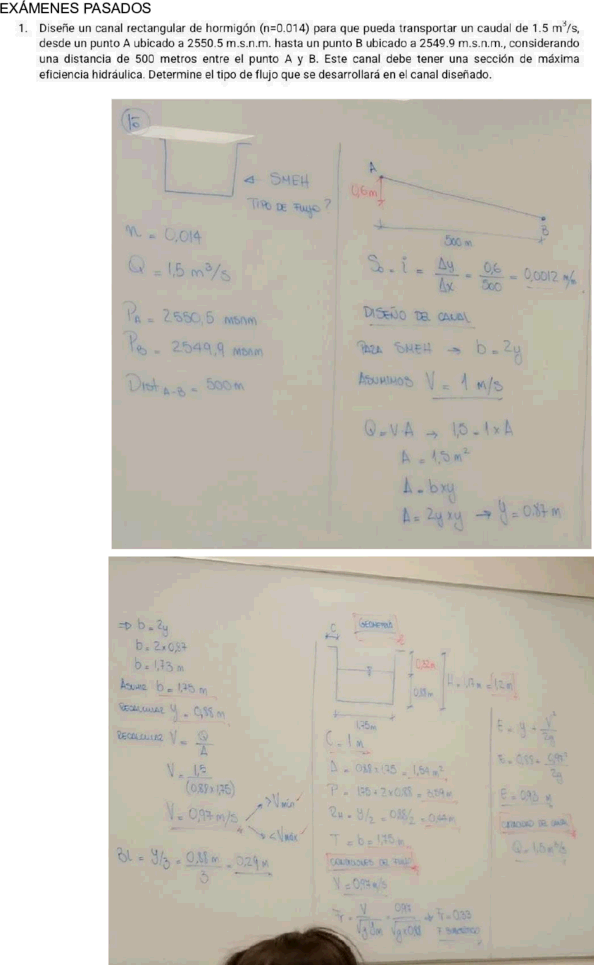 EXÁMENES PASADOS
1. Diseñe un canal rectangular de hormigón (n=0.014) para que pueda transportar un caudal de 1.5 m³/s,
desde un punto A ubicado a 2550.5 m.s.n.m. hasta un punto B ubicado a 2549.9 m.s.n.m., considerando
una distancia de 500 metros entre el punto A y B. Este canal debe tener una sección de máxima
eficiencia hidráulica. Determine el tipo de flujo que se desarrollará en el canal diseñado.
SMEH
TIPO DE FLUJO?
n = 0,014
Q = 1,5 m³/s
P_A = 2550,5 msnm
P_B = 2549,9 msnm
Dist A-B = 500 m
A
0,6m
B
500 m
i = Δy/Δx = 0,6/500 = 0,0012
DISEÑO DEL CANAL
PARA SMEH → b = 2y
ASUMIMOS V = 1 m/s
Q = VA → 1,5 = 1 x A
A = 1,5 m²
A = b x y
A = 2y x y → y = 0.87 m
⇒ b = 2y
b = 2 x 0,87
b = 1,73 m
ASUMIR b = 1,75 m
RECALCULAR y = 0,88 m
RECALCULAR V = Q/A
V = 1,5/(0,88 x 1,75)
V = 0,97 m/s
> Vmin
< Vmax
BL = y/3 = 0,88 m/3 = 0,29 m
GEOMETRÍA
C
1,75m
A = 0,88 x 1,75 = 1,54 m²
RH = y/2 = 0,88/2 = 0,44 m
T = b = 1,75 m
CONDICIONES DE FLUJO
V = 0,97 m/s
E = y + V²/2g
E = 0,93 m
Q = 1,5 m³/s